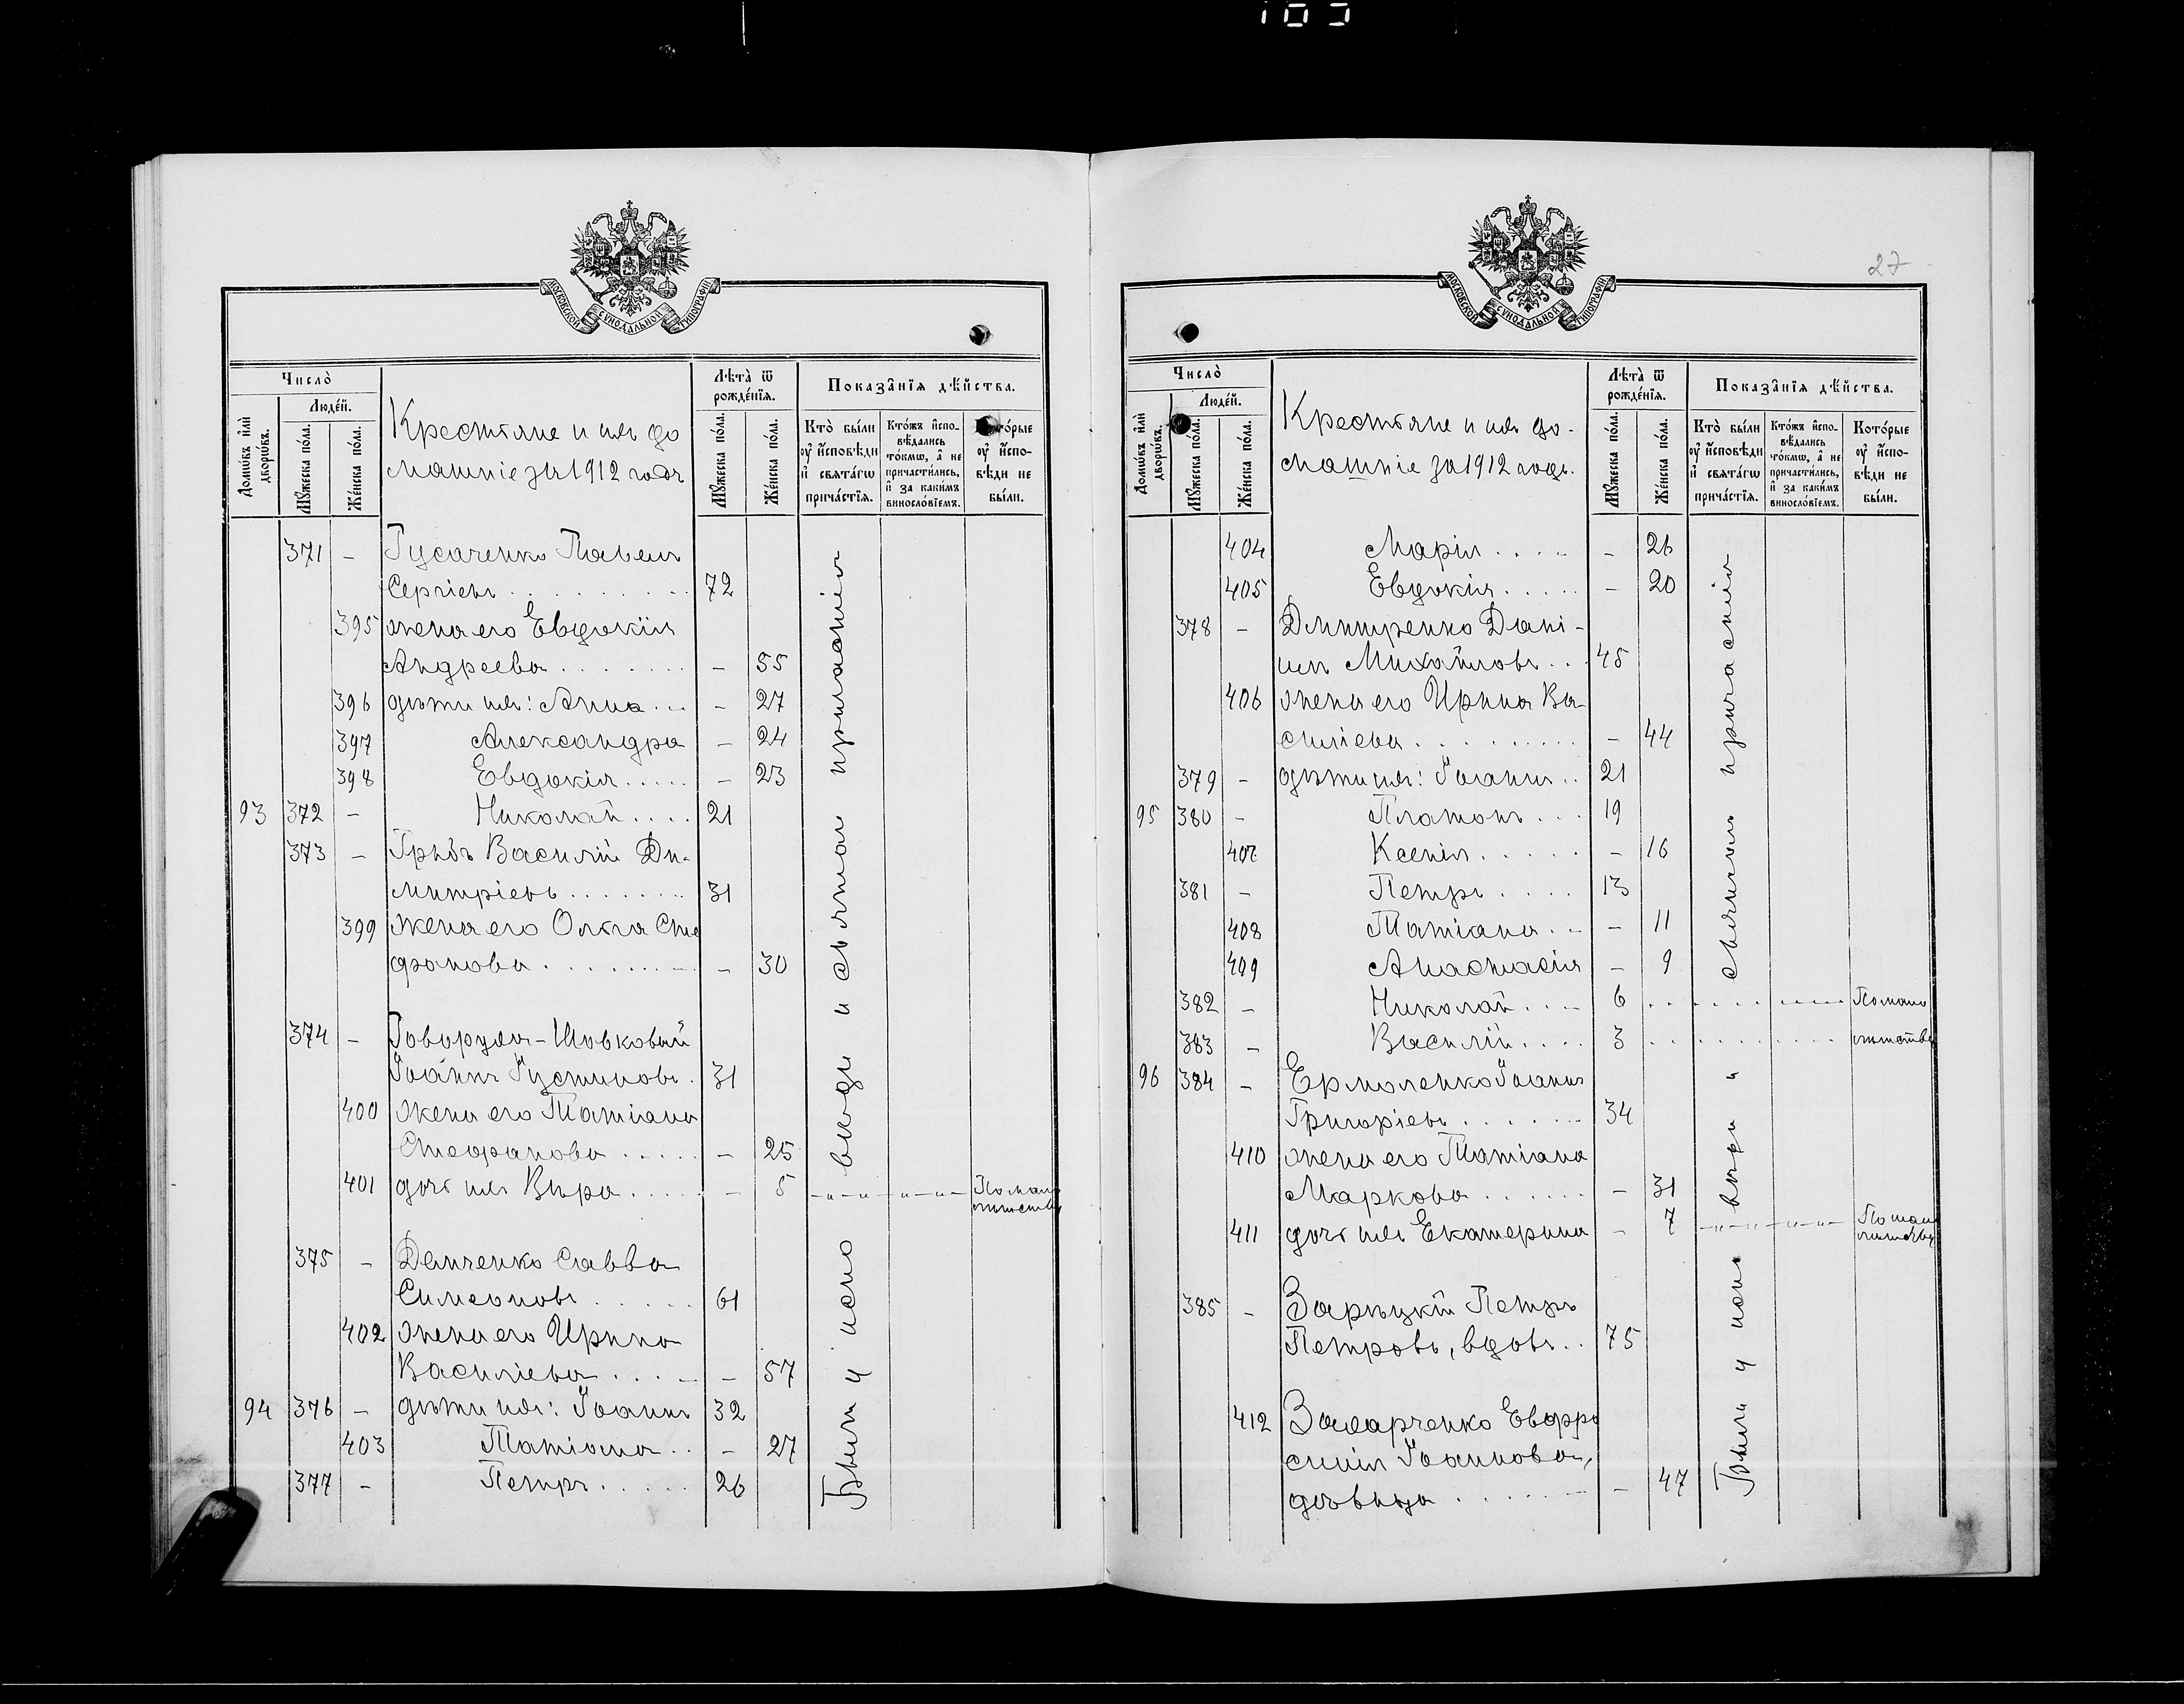 МОСКОВСКОЙ СѴНОДАЛЬНОЙ ТИПОГРАФІИ
Число̀
Домѡ́въ и҆лѝ дворѡ́въ.
Люде́й.
Мꙋ́жеска по́ла.
Же́нска по́ла.
Крестьяне и ихъ до
машніе за 1912 годъ
Лѣта̀ ѿ рожде́нїѧ.
Мꙋ́жеска по́ла.
Же́нска по́ла.
Показа̑нїѧ дѣ́йства.
Кто̀ бы́ли
ᲂу҆ и҆́сповѣди
и҆ свѧта́гѡ
прича́стїѧ.
Кто́жъ и҆спо-
вѣ́дались
то́кмѡ, а҆ не
причасти́лись,
и҆ за каки́мъ
виносло́вїемъ.
Кото́рые
ᲂу҆ и҆́спо-
вѣди не
бы́ли.
371 - Гусаченко Павелъ
Сергіевъ . . . . . . . . . 72
395 жена его Евдокія
Андреева . . . . . . . - 55
396 дѣти ихъ: Анна . . . - 27
397 Александра - 24
398 Евдокія . . . . . - 23
93 372 - Николай . . . . 21
373 - Грибъ Василій Ди-
митріевъ . . . . . . . 31
399 жена его Ольга Сте
фанова . . . . . . . - 30
374 - Говоруха-Шовковый
Іоаннъ Іустиновъ . 31
400 жена его Татіана
Стефанова . . . . . - 25
401 дочь ихъ Вѣра . . . . - 5 -"-"-"-"- По мало
лѣтству
375 - Демченко Савва
Симеоновъ . . . . . 61
402 жена его Ирина
Василіева . . . . - 57
94 376 - дѣти ихъ: Іоаннъ 32
403 Татіана . . - 27
377 - Петръ . . . . . 26
Были у испо вѣди и святаго причастія
27
МОСКОВСКОЙ СѴНОДАЛЬНОЙ ТИПОГРАФІИ
Число̀
Домѡ́въ и҆лѝ дворѡ́въ.
Люде́й.
Мꙋ́жеска по́ла.
Же́нска по́ла.
Крестьяне и ихъ до-
машніе за 1912 годъ.
Лѣта̀ ѿ рожде́нїѧ.
Мꙋ́жеска по́ла.
Же́нска по́ла.
Показа̑нїѧ дѣ́йства.
Кто̀ бы́ли
ᲂу҆ и҆́сповѣди
и҆ свѧта́гѡ
прича́стїѧ.
Кто́жъ и҆спо-
вѣ́дались
то́кмѡ, а҆ не
причасти́лись,
и҆ за каки́мъ
виносло́вїемъ.
Кото́рые
ᲂу҆ и҆́спо-
вѣди не
бы́ли.
404 Марія . . . . - 26
405 Евдокія . . . . . - 20
378 - Дмитренко Дані-
илъ Михайловъ . . . 45
406 жена его Ирина Ва-
силіева . . . . . . . . . - 44
379 - дѣти ихъ: Іоаннъ . . 21
95 380 - Платонъ . . . 19
407 Ксенія . . . . . - 16
381 - Петръ . . . . 13
408 Татіана . . - 11
409 Анастасія - 9
382 - Николай . . . . 6 . . . . . . . . По мало
383 - Василій . . . . 3 . . . . . . . . лѣтству
96 384 - Ермоленко Іоаннъ
Григоріевъ . . . . . . 34
410 жена его Татіана
Маркова . . . . . . - 31
411 дочь ихъ Екатерина - 7 -"-"-"-"- По мало
лѣтству
385 - Зарѣцкій Петръ
Петровъ, вдовъ . . 75
412 Захарченко Евфро
синія Іоаннова,
дѣвица . . . . . . - 47
Были у испо вѣди и святаго причастія